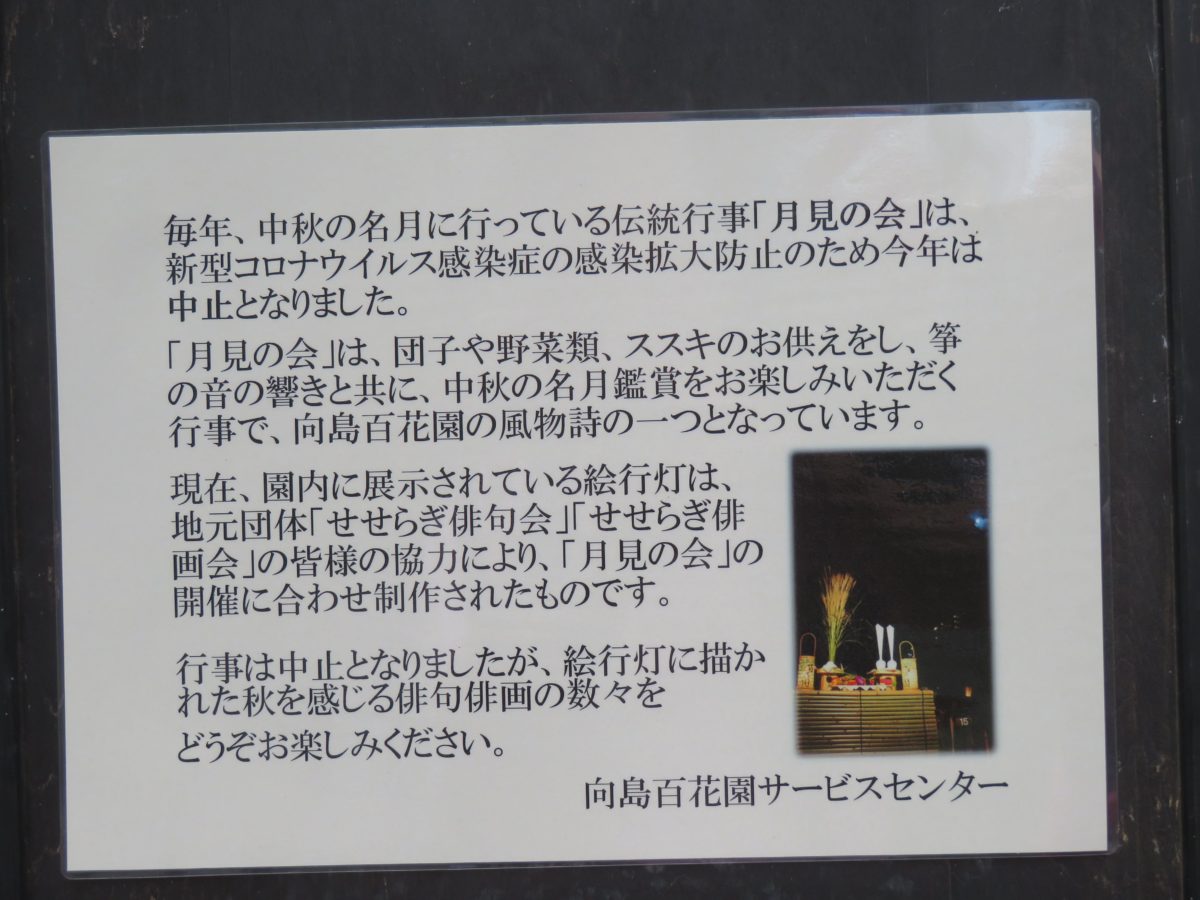 毎年、中秋の名月に行っている伝統行事「月見の会」は、
新型コロナウイルス感染症の感染拡大防止のため今年は
中止となりました。
「月見の会」は、団子や野菜類、ススキのお供えをし、箏
の音の響きと共に、中秋の名月鑑賞をお楽しみいただく
行事で、向島百花園の風物詩の一つとなっています。
現在、園内に展示されている絵行灯は、
地元団体「せせらぎ俳句会」「せせらぎ俳
画会」の皆様の協力により、「月見の会」の
開催に合わせ制作されたものです。
行事は中止となりましたが、絵行灯に描か
れた秋を感じる俳句俳画の数々を
どうぞお楽しみください。
15
向島百花園サービスセンター